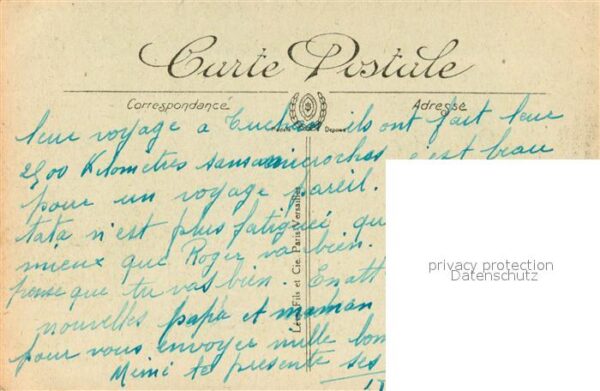 Carte Postale
Correspondance
Adresse
leur voyage a Tuchan ils ont fait leur
2500 Kilometres sans anicroches c'est beau
pour un voyage pareil.
tata n'est plus fatiguée qu
mieux que Roger va bien.
pense que tu vas bien. En att
nouvelles papa et maman
pour vous envoyer mille bon
Mimi te presente ses
Lévy Fils et Cie, Paris-Versailles
privacy protection
Datenschutz